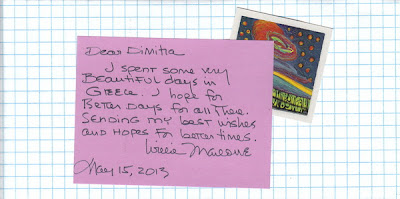 Dear Dimitra
I spent some very
Beautiful days in
Greece. I hope for
Better Days for all There.
Sending my best wishes
and Hopes for better times.
May 15, 2013